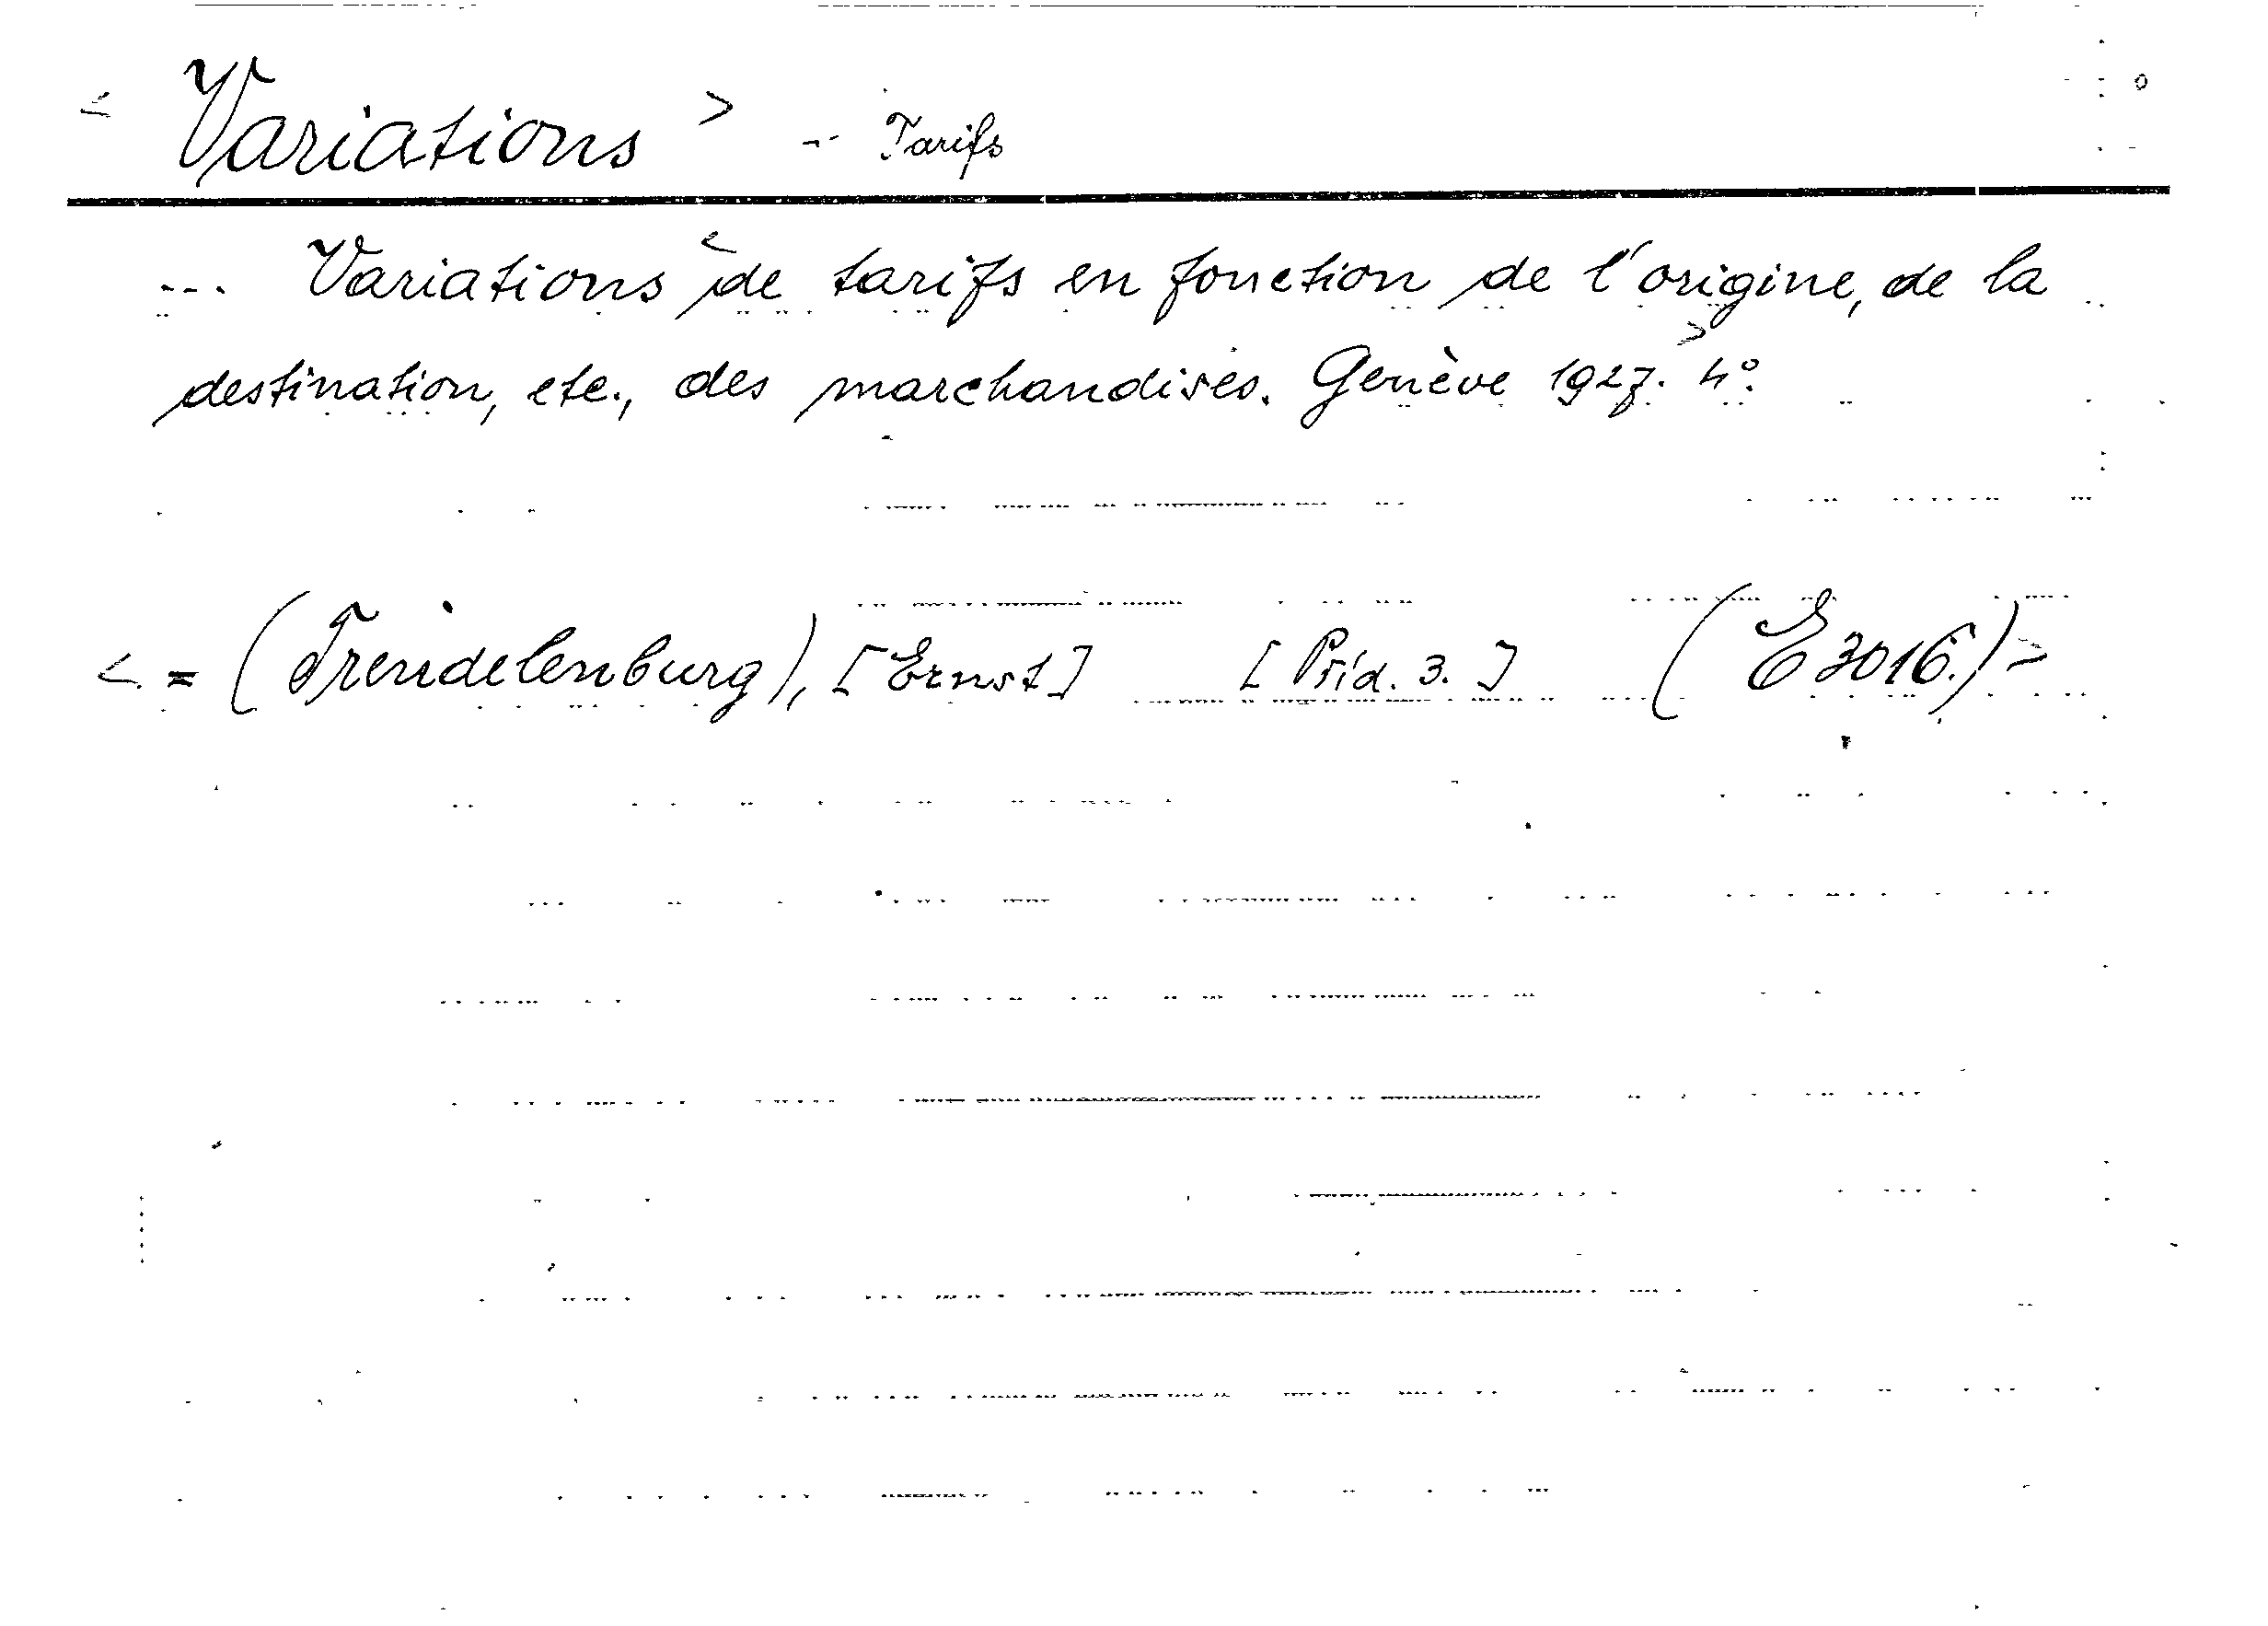 < Variations > -- Tarifs
... Variations < de tarifs en fonction de l'origine, de la
destination, etc., des marchandises. > Genève 1927. 4°.
< = (Trendelenburg), [Ernst] [Příd. 3.] (E 3016.) >